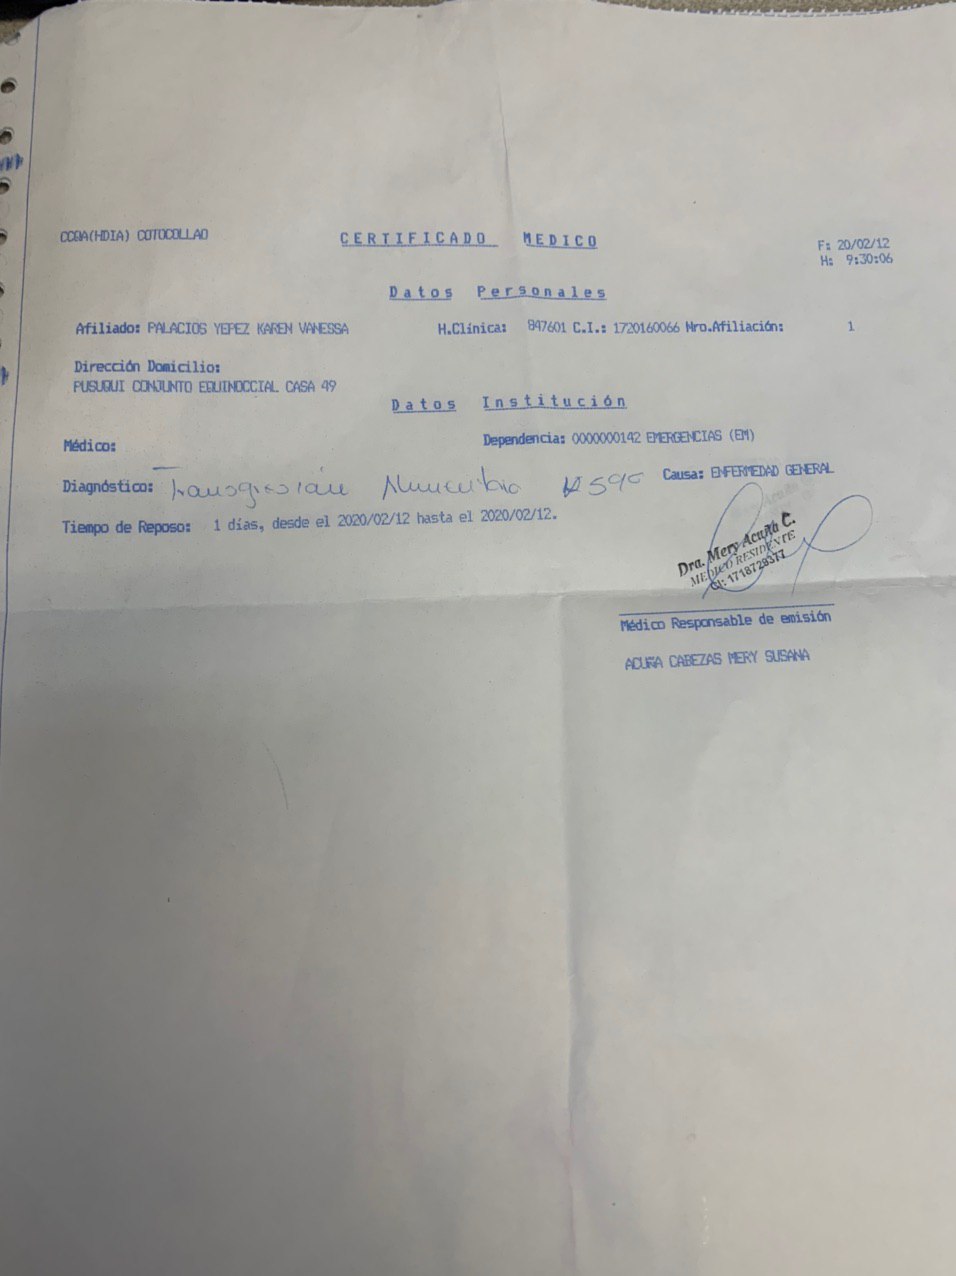 CCQA(HDIA) COTOCOLLAO
CERTIFICADO MEDICO
F: 20/02/12
H: 9:30:06
Datos Personales
Afiliado: PALACIOS YEPEZ KAREN VANESSA H.Clínica: 847601 C.I.: 1720160066 Nro.Afiliación: 1
Dirección Domicilio:
PUSUQUI CONJUNTO EQUINOCCIAL CASA 49
Datos Institución
Médico:
Dependencia: 0000000142 EMERGENCIAS (EM)
Diagnóstico: Transgresión Alimentaria K590 Causa: ENFERMEDAD GENERAL
Tiempo de Reposo: 1 días, desde el 2020/02/12 hasta el 2020/02/12.
Dra. Mery Acuña C.
MEDICO RESIDENTE
CI: 1718729377
Médico Responsable de emisión
ACUÑA CABEZAS MERY SUSANA